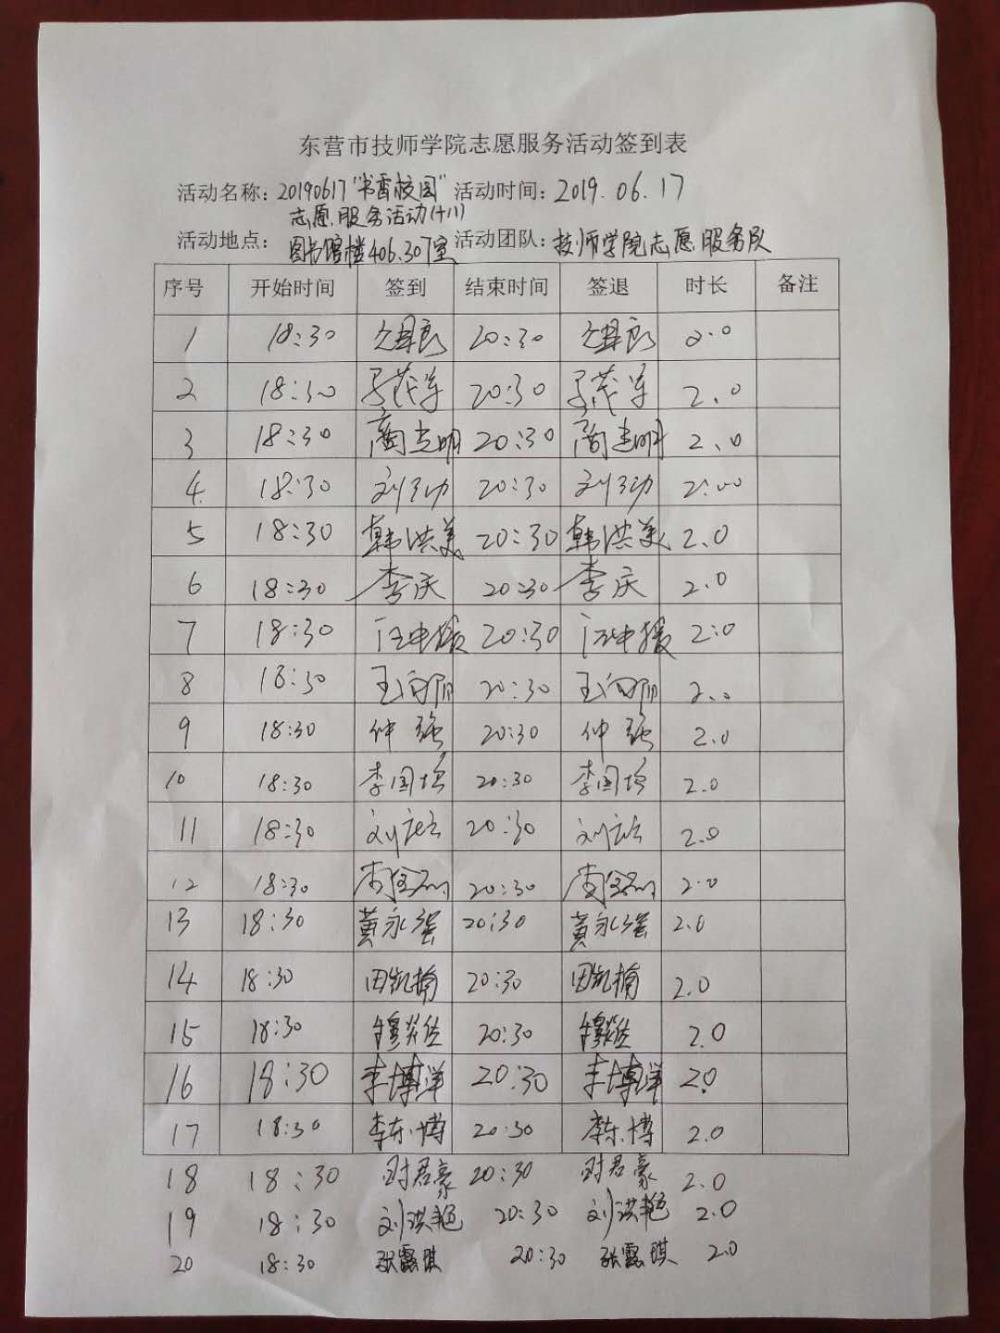 东营市技师学院志愿服务活动签到表
活动名称：20190617“书香校园” 活动时间：2019.06.17
志愿服务活动(十八)
活动地点：图书馆楼406.307室 活动团队：技师学院志愿服务队
序号 开始时间 签到 结束时间 签退 时长 备注
1 18:30 20:30 2.0
2 18:30 20:30 2.0
3 18:30 20:30 2.0
4 18:30 20:30 2.00
5 18:30 韩洪美 20:30 韩洪美 2.0
6 18:30 李庆 20:30 李庆 2.0
7 18:30 20:30 2.0
8 18:30 20:30 2.0
9 18:30 仲强 20:30 仲强 2.0
10 18:30 20:30 2.0
11 18:30 20:30 2.0
12 18:30 20:30 2.0
13 18:30 黄永强 20:30 黄永强 2.0
14 18:30 田凯楠 20:30 田凯楠 2.0
15 18:30 20:30 2.0
16 18:30 李博洋 20:30 李博洋 2.0
17 18:30 李东博 20:30 李东博 2.0
18 18:30 20:30 2.0
19 18:30 刘洪艳 20:30 刘洪艳 2.0
20 18:30 张露琪 20:30 张露琪 2.0